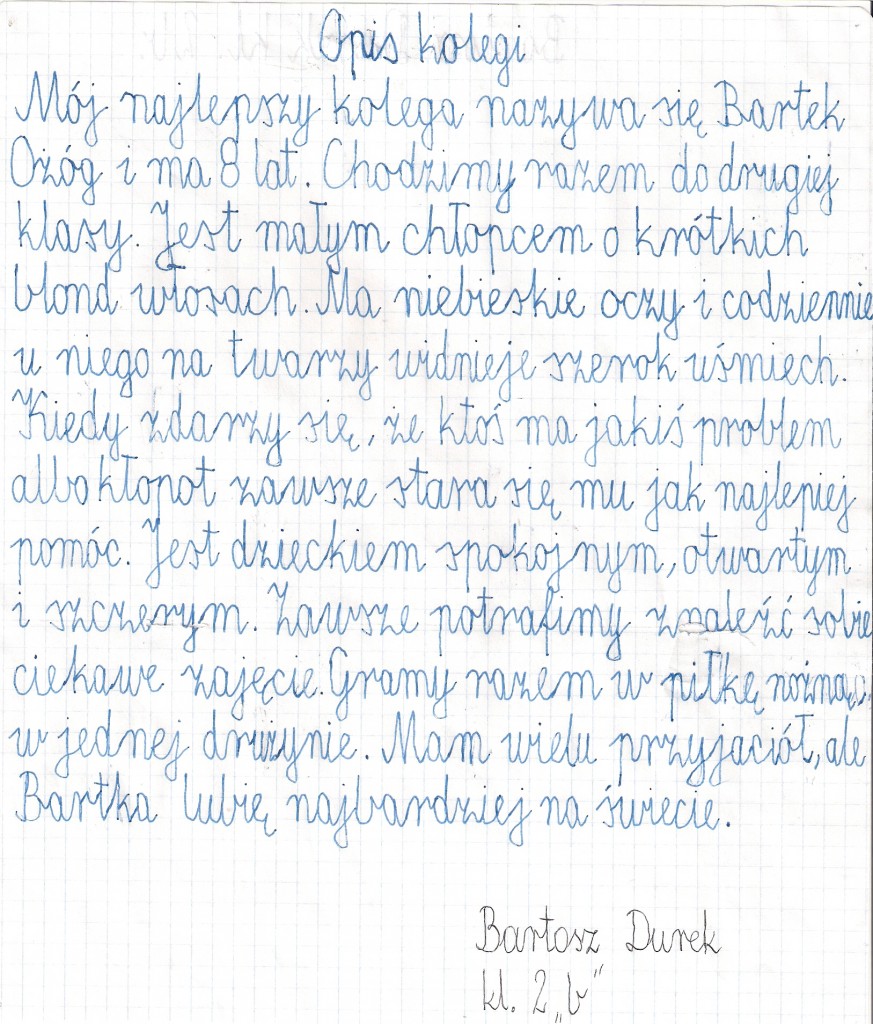 Opis kolegi
Mój najlepszy kolega nazywa się Bartek
Ożóg i ma 8 lat. Chodzimy razem do drugiej
klasy. Jest małym chłopcem o krótkich
blond włosach. Ma niebieskie oczy i codziennie
u niego na twarzy widnieje szerok uśmiech.
Kiedy zdarzy się, że ktoś ma jakiś problem
albo kłopot zawsze stara się mu jak najlepiej
pomóc. Jest dzieckiem spokojnym, otwartym
i szczerym. Zawsze potrafimy znaleźć sobie
ciekawe zajęcie. Gramy razem w piłkę nożną
w jednej drużynie. Mam wielu przyjaciół, ale
Bartka lubię najbardziej na świecie.
Bartosz Durek
kl. 2 „b"